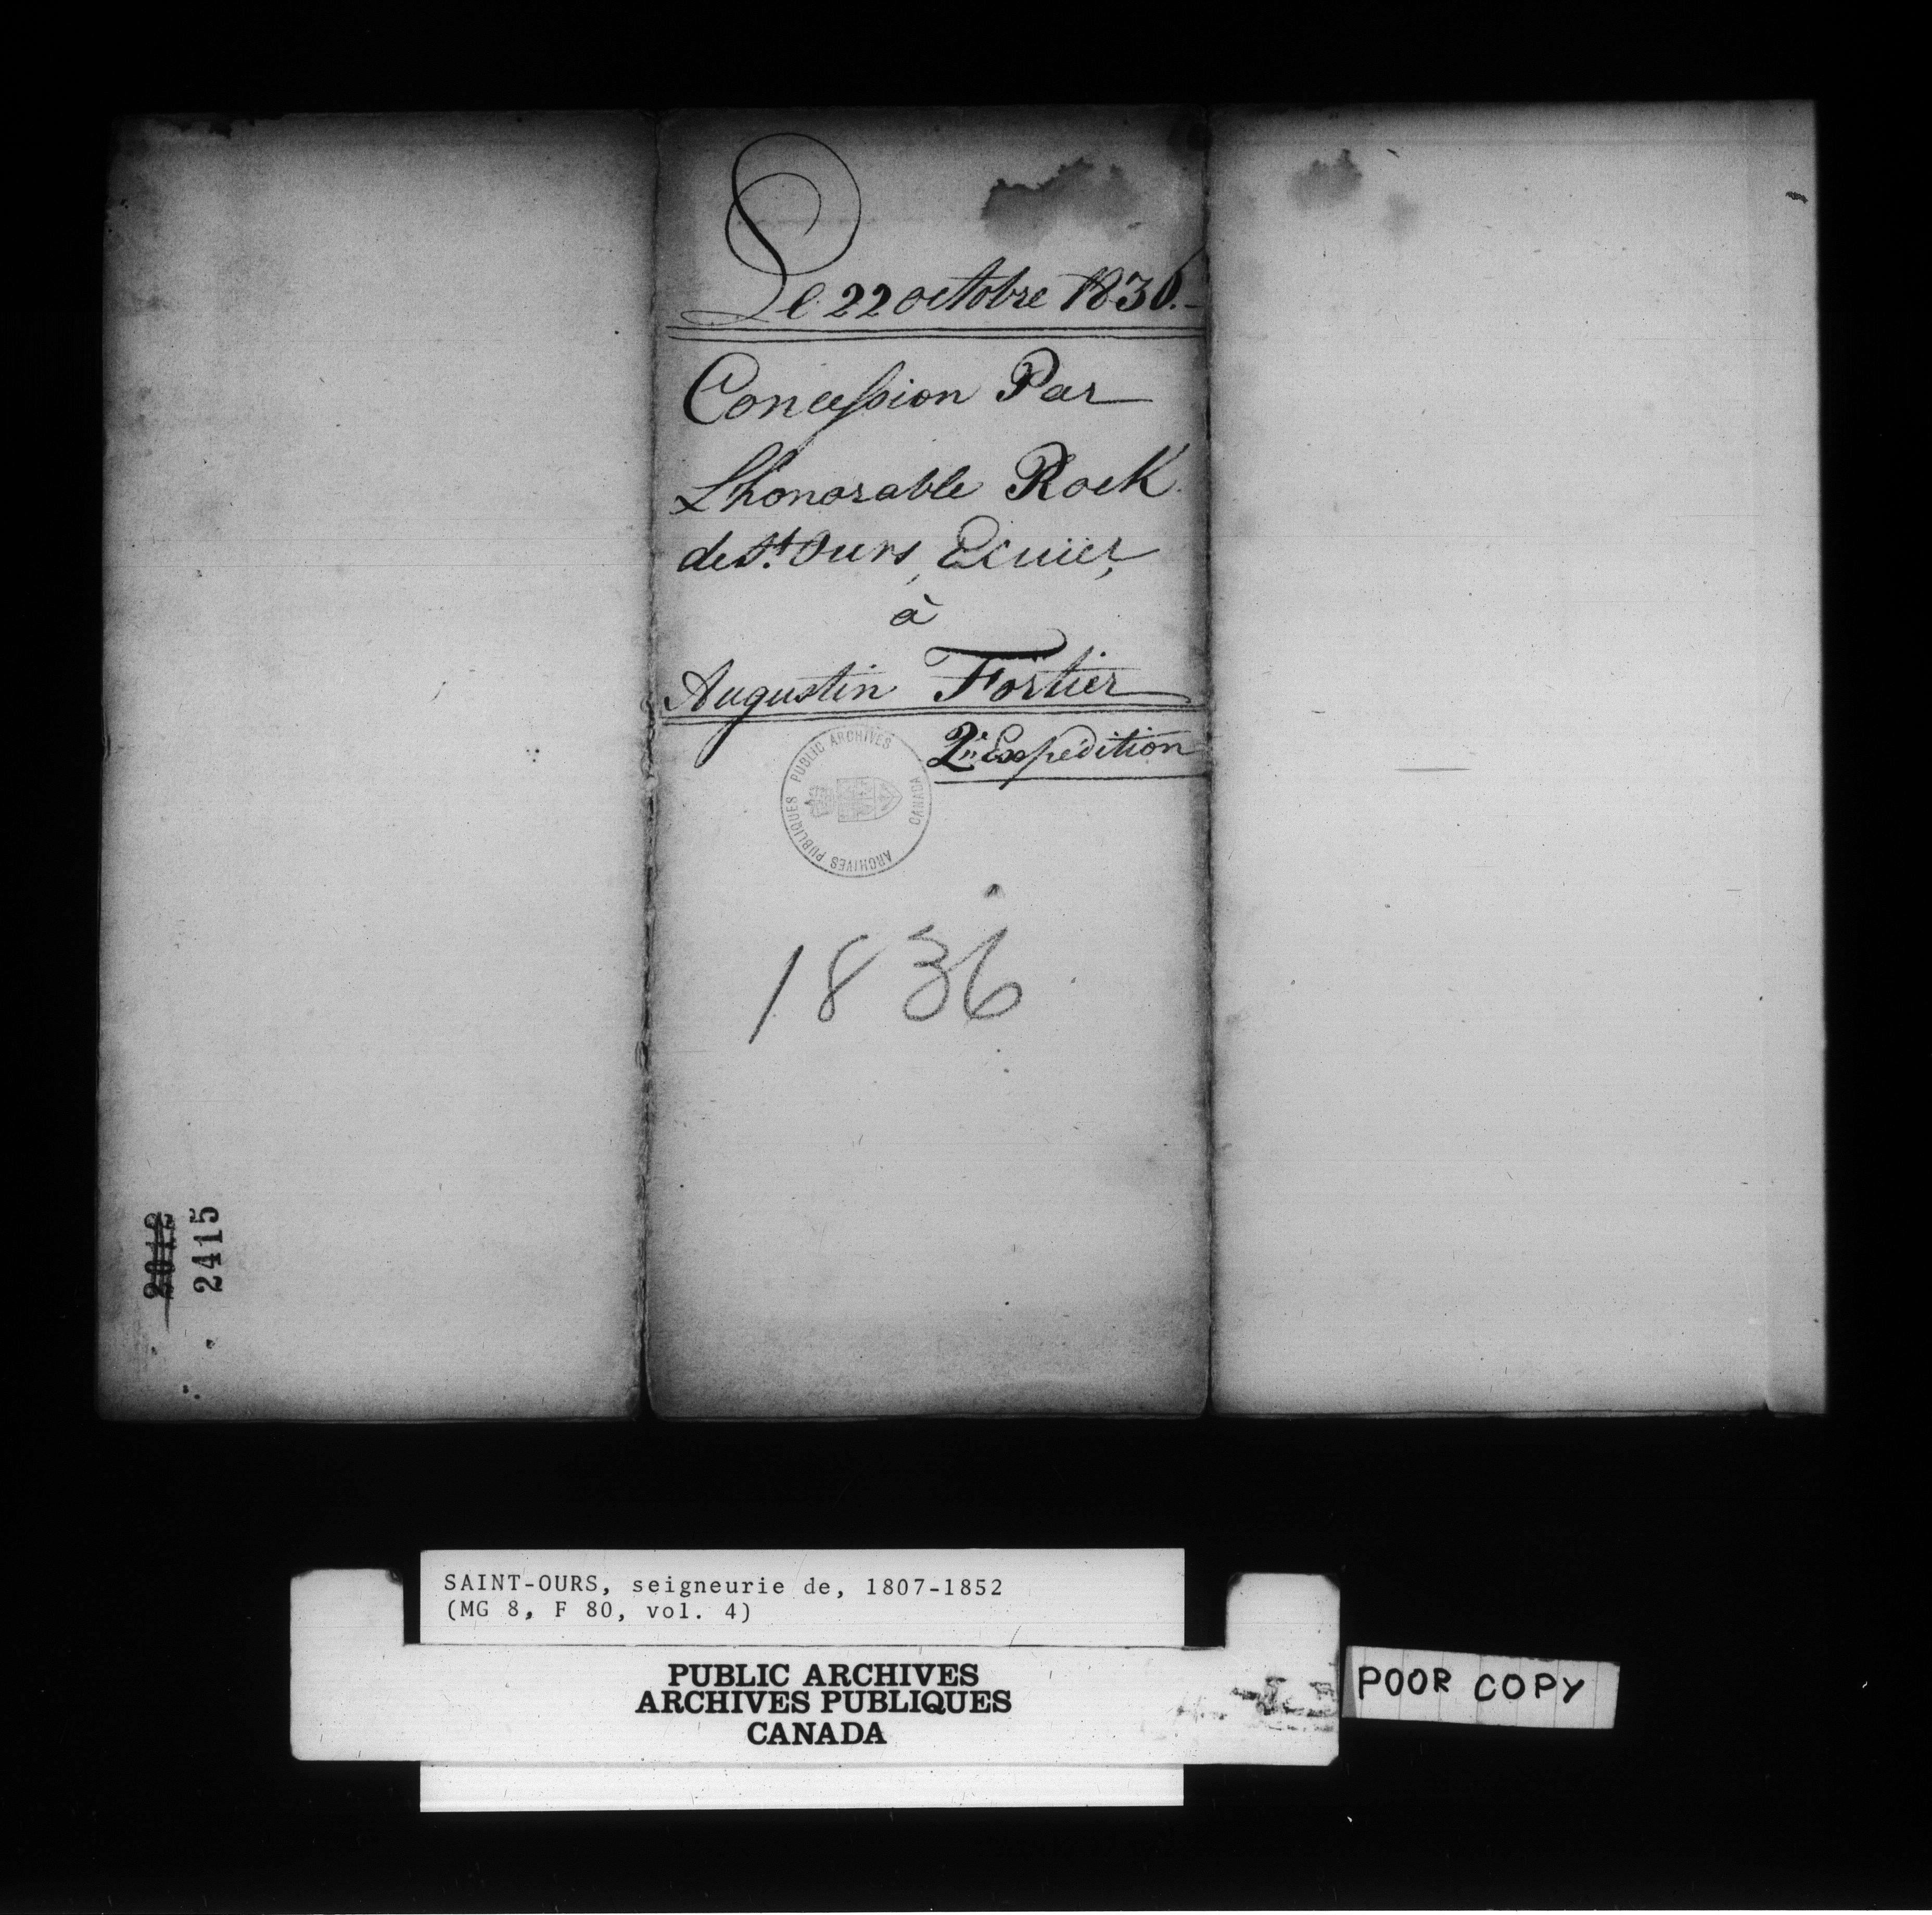 Le 22 octobre 1836.
Concession Par
L'honorable Rock
de St. Ours, Ecuier,
à
Augustin Fortier
2e. Expédition
PUBLIC ARCHIVES
CANADA
ARCHIVES PUBLIQUES
1836
2415
SAINT-OURS, seigneurie de, 1807-1852
(MG 8, F 80, vol. 4)
PUBLIC ARCHIVES
ARCHIVES PUBLIQUES
CANADA
POOR COPY